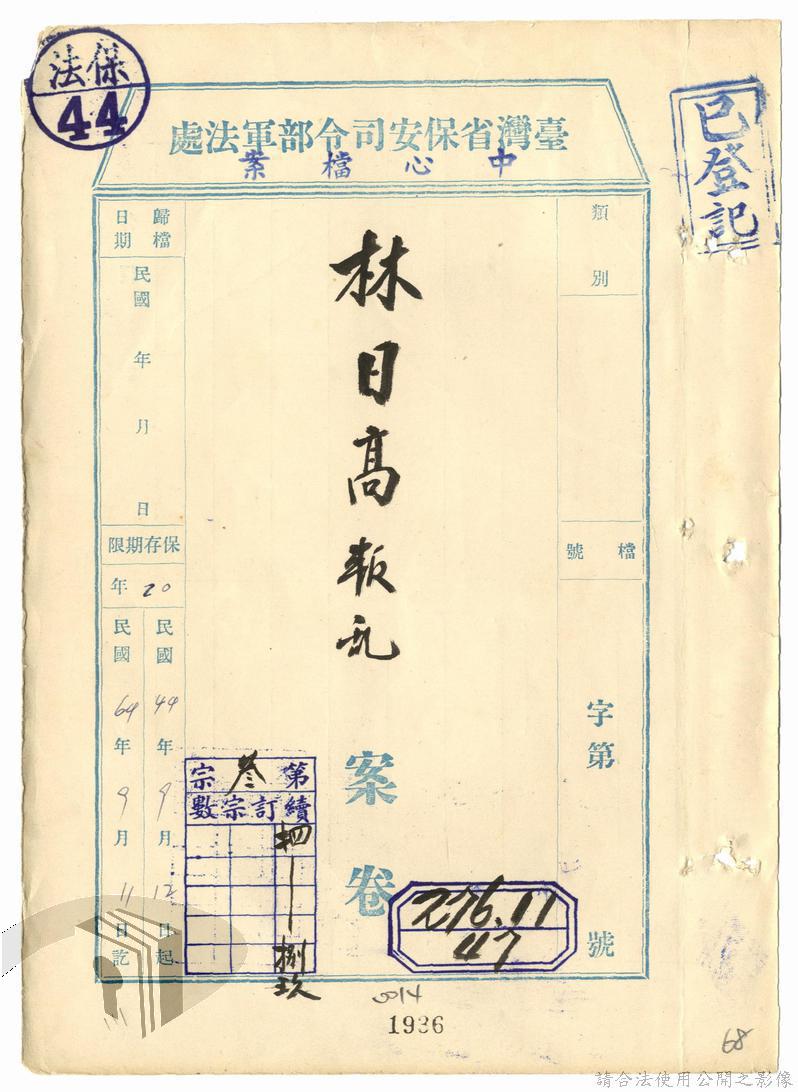 保法
44
臺灣省保安司令部軍法處
中心檔案
已登記
類別
檔號
字第
號
林日高叛乱
案卷
歸檔日期
民國 年 月 日
保存期限
20年
民國44年9月12日起
民國64年9月11日訖
第叁宗
續訂宗數
捌玖
276.11
47
1936
68
請合法使用公開之影像